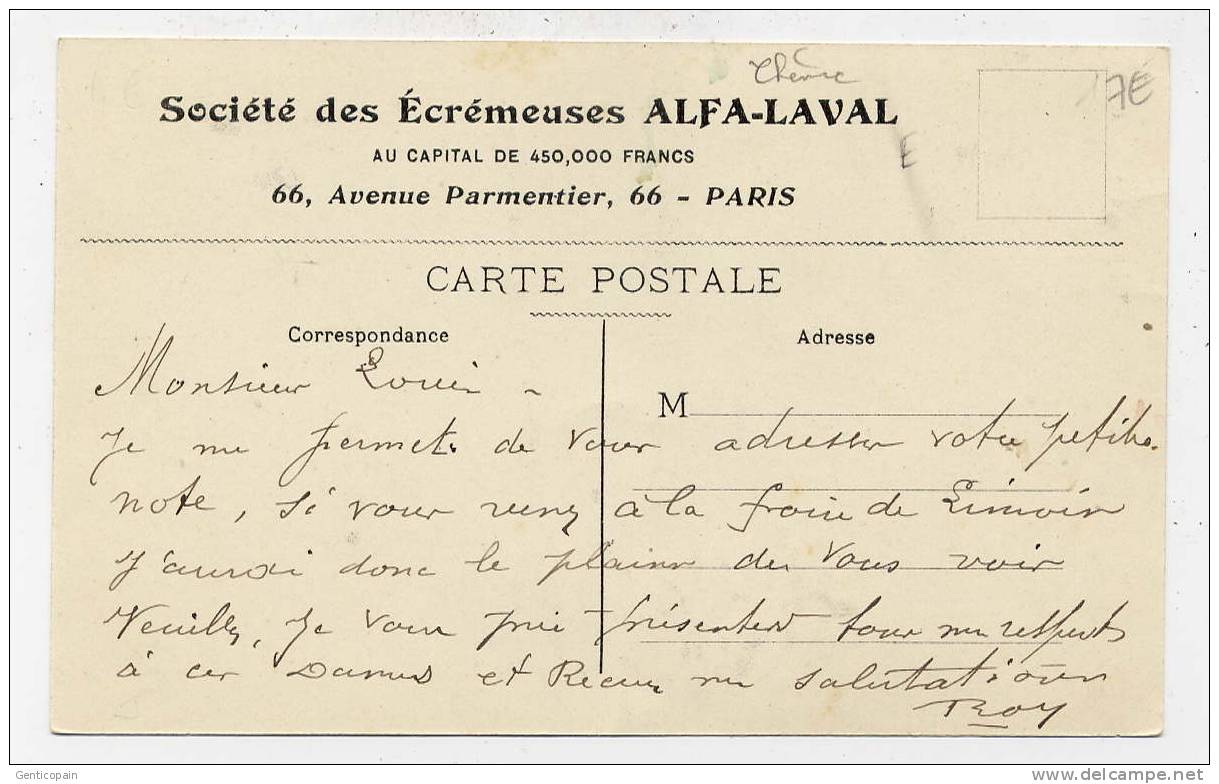 Thème
17€
Société des Écrémeuses ALFA-LAVAL
E
AU CAPITAL DE 450,000 FRANCS
66, Avenue Parmentier, 66 - PARIS
CARTE POSTALE
Correspondance
Adresse
M
Monsieur Louis -
Je me permet de vous adresser votre petite
note, si vous venez à la foire de
J'aurai donc le plaisir de vous voir
Veuillez, Je vous prie présenter tous mes respects
à ces Dames et Recevez mes salutations
Roy
Genticopain
http://www.delcampe.net